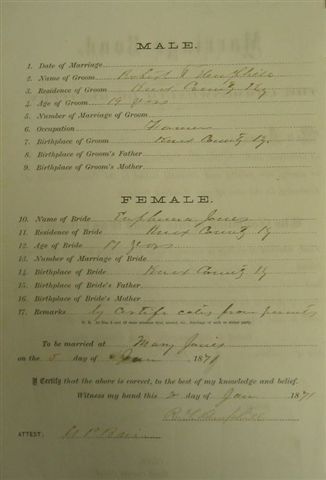 MALE.
1. Date of Marriage
2. Name of Groom Robert
3. Residence of Groom Knox County Ky
4. Age of Groom 19 years
5. Number of Marriage of Groom
6. Occupation Farmer
7. Birthplace of Groom Knox County Ky.
8. Birthplace of Groom's Father
9. Birthplace of Groom's Mother
FEMALE.
10. Name of Bride Jones
11. Residence of Bride Knox County Ky
12. Age of Bride 17 years
13. Number of Marriage of Bride
14. Birthplace of Bride Knox County Ky
15. Birthplace of Bride's Father
16. Birthplace of Bride's Mother
17. Remarks By certificates from parents
To be married at Mary Jones
on the 5 day of Jan 1871
I Certify that the above is correct, to the best of my knowledge and belief.
Witness my hand this 2 day of Jan 1871
ATTEST: